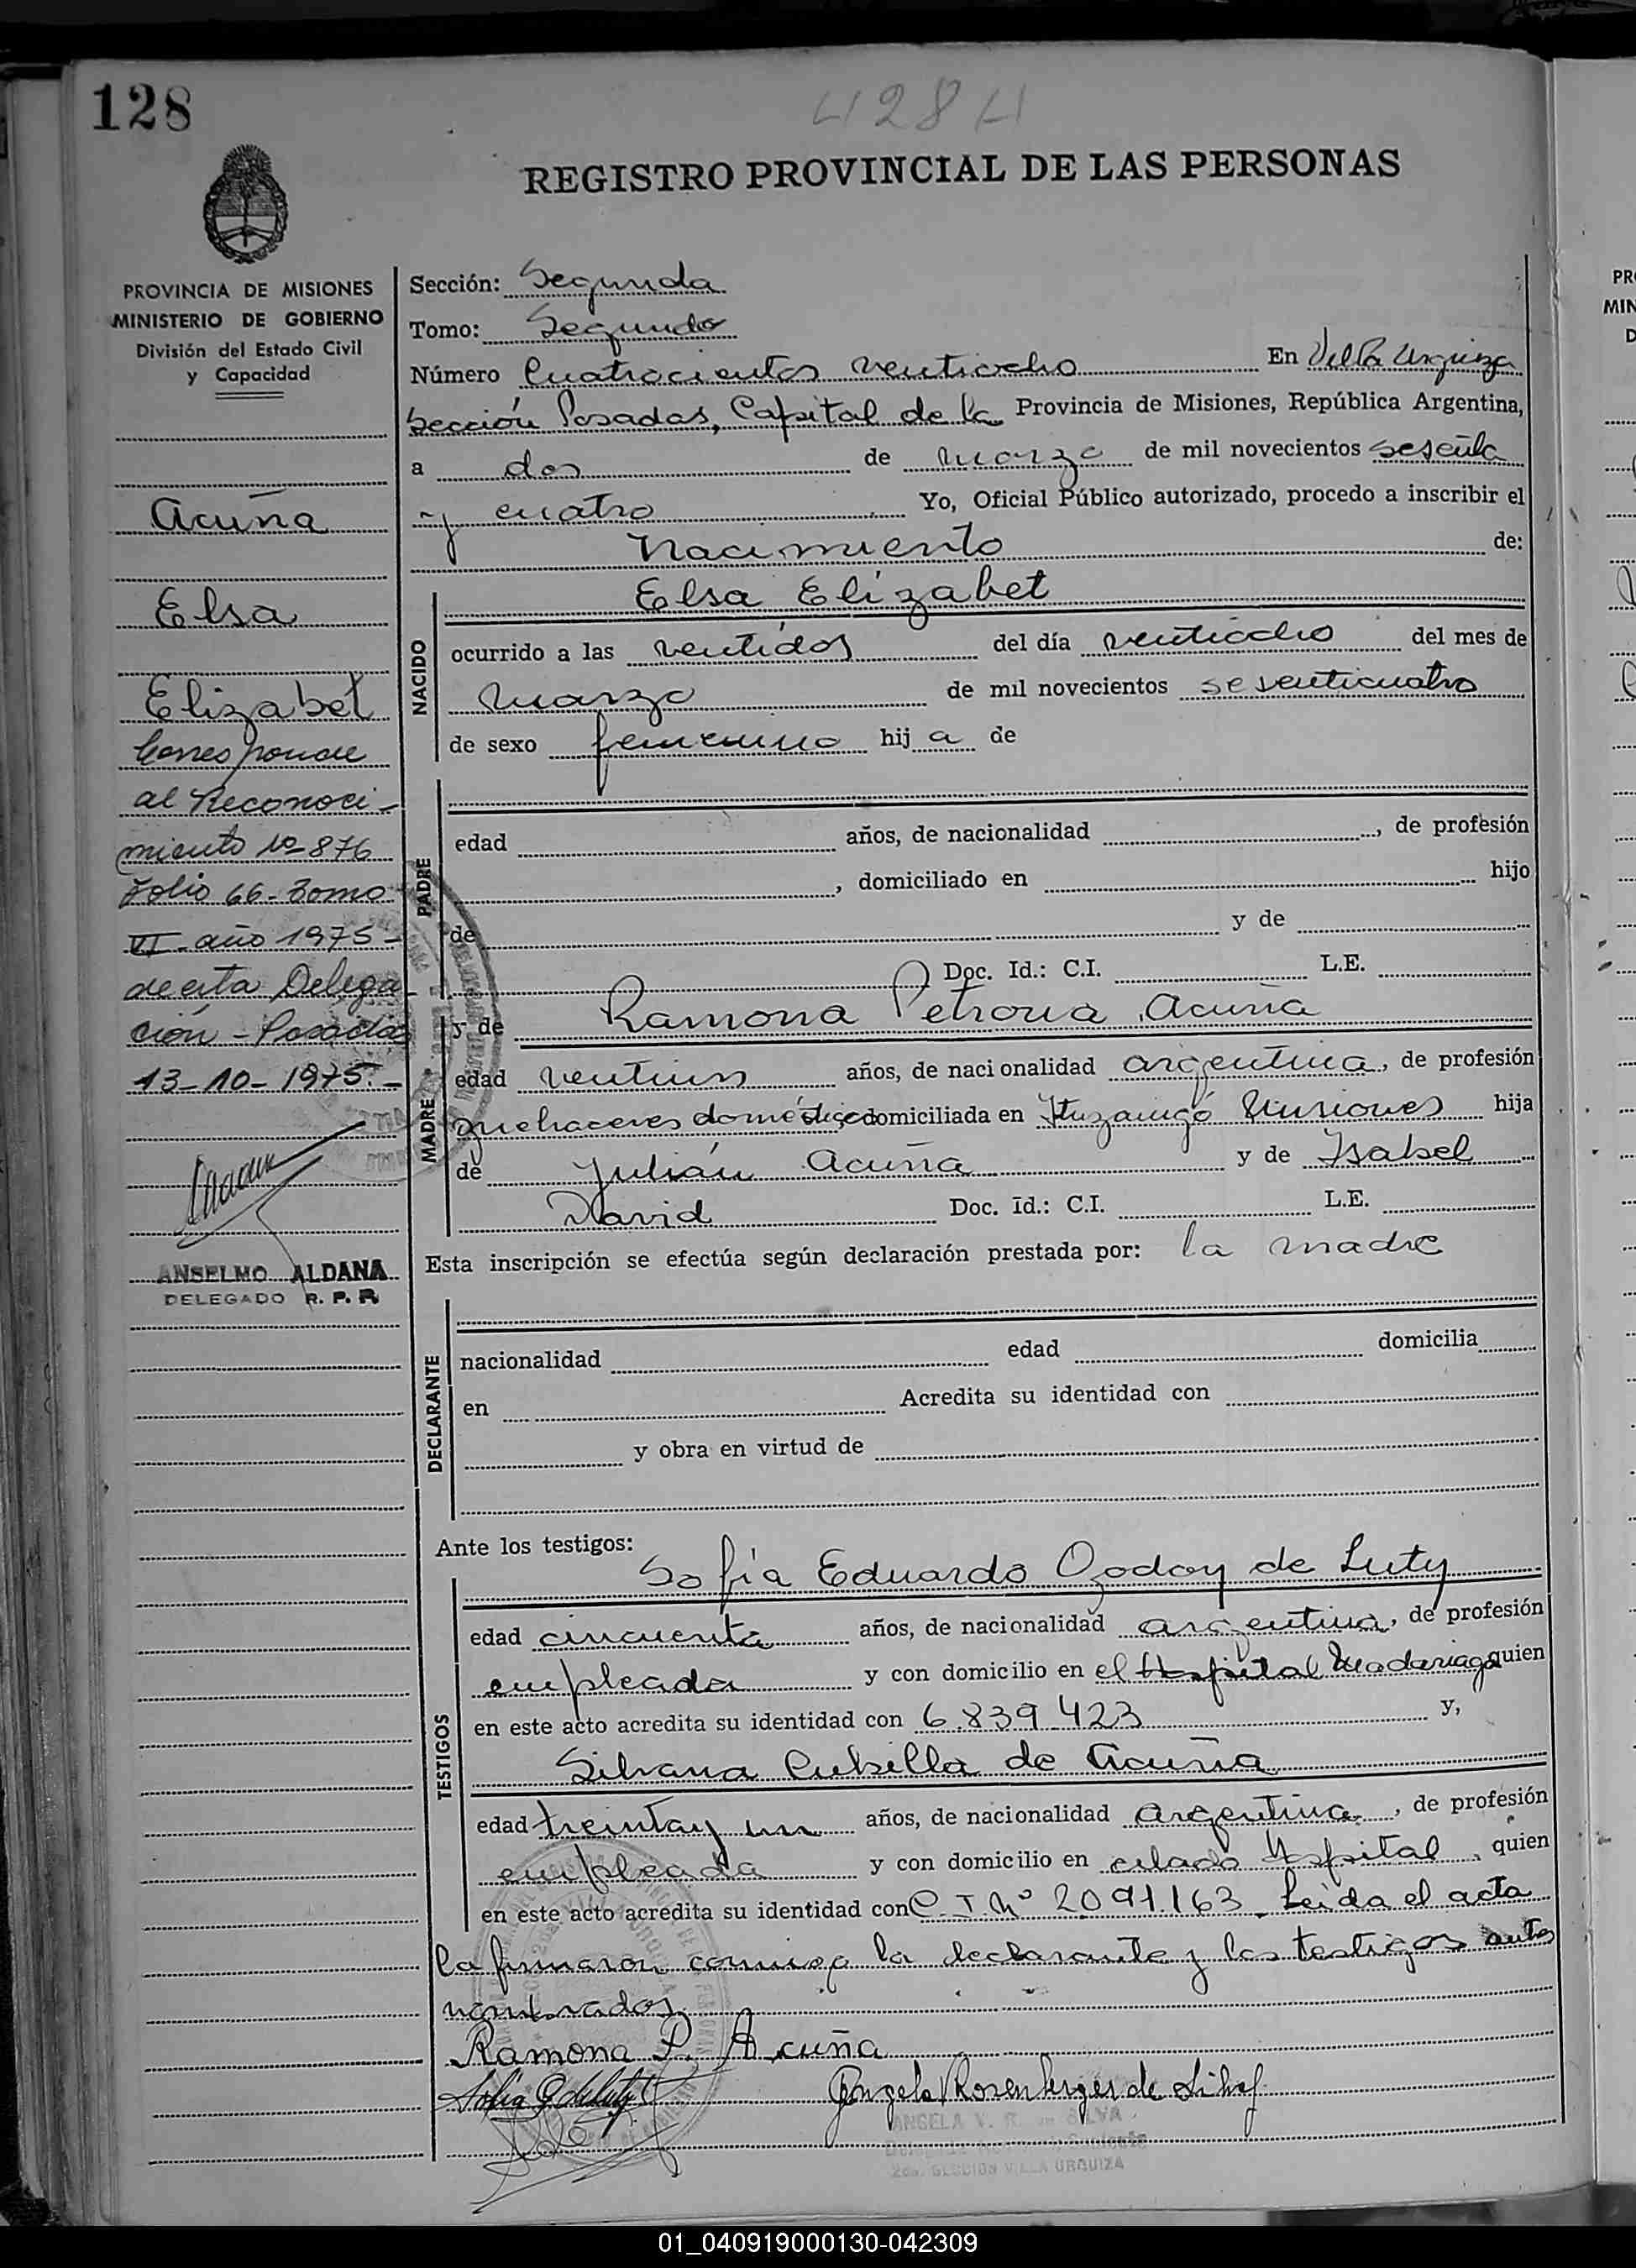 128
4284
REGISTRO PROVINCIAL DE LAS PERSONAS
PROVINCIA DE MISIONES
MINISTERIO DE GOBIERNO
División del Estado Civil
y Capacidad
Acuña
Elsa
Elizabet
Corresponde
al Reconoci-
miento Nº 876
Folio 66 - Tomo
VI - año 1975 -
de esta Delega-
ción - Posadas
13-10-1975.-
ANSELMO ALDANA
DELEGADO R. P. P.
Sección: Segunda
Tomo: Segundo
Número Cuatrocientos ventiocho En Villa Urquiza
Sección Posadas, Capital de la Provincia de Misiones, República Argentina,
a dos de marzo de mil novecientos
y cuatro Yo, Oficial Público autorizado, procedo a inscribir el
Nacimiento de:
NACIDO
Elsa Elizabet
ocurrido a las ventidos del día ventiocho del mes de
marzo de mil novecientos seseuticuatro
de sexo femenino hij a de
PADRE
edad años, de nacionalidad , de profesión
, domiciliado en hijo
de y de
Doc. Id.: C.I. L.E.
MADRE
y de Ramona Petrona Acuña
edad ventiun años, de nacionalidad argentina, de profesión
quehaceres domésticos domiciliada en Ituzaingó Misiones hija
de Julián Acuña y de Isabel
David Doc. Id.: C.I. L.E.
Esta inscripción se efectúa según declaración prestada por: la madre
DECLARANTE
nacionalidad edad domicilia
en Acredita su identidad con
y obra en virtud de
Ante los testigos:
TESTIGOS
Sofía Eduardo Godoy de Luty
edad cincuenta años, de nacionalidad argentina, de profesión
empleada y con domicilio en el Hospital Madariaga quien
en este acto acredita su identidad con 6.839.423 y,
Silvana Cubilla de Acuña
edad treinta y un años, de nacionalidad argentina, de profesión
empleada y con domicilio en citado Hospital, quien
en este acto acredita su identidad con C.I. Nº 2091.163. Leída el acta
la firmaron conmigo la declarante y los testigos antes
nombrados.
Ramona P. Acuña
Sofia G de Luty
Angela V Rosenberger de Silva
ANGELA V. R. DE SILVA
2da. SECCION VILLA URQUIZA
01_040919000130-042309